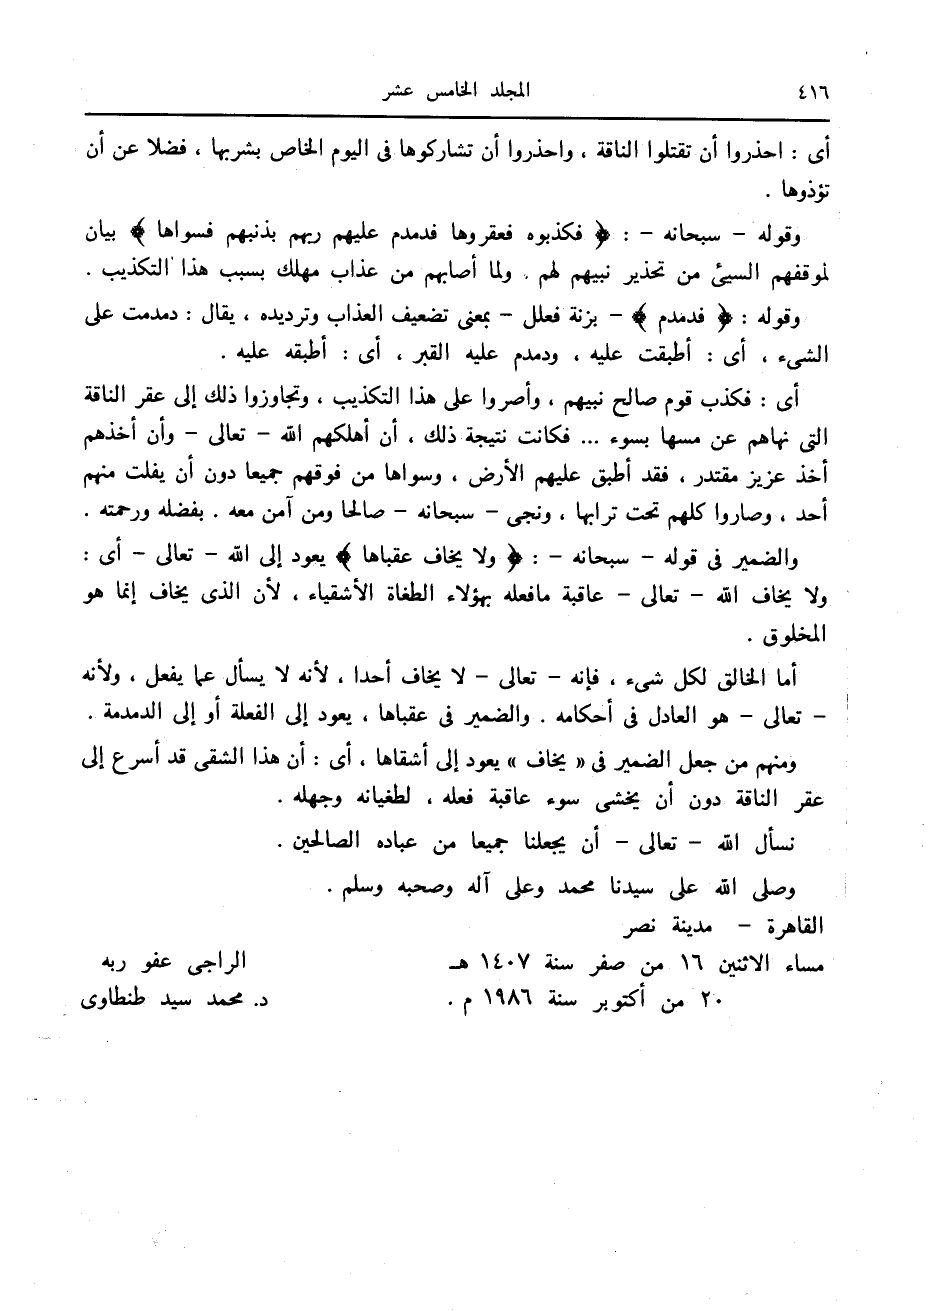 ٤١٦ المجلد الخامس عشر
أى : احذروا أن تقتلوا الناقة ، واحذروا أن تشاركوها فى اليوم الخاص بشربها ، فضلا عن أن
تؤذوها .
وقوله – سبحانه – : ﴿ فكذبوه فعقروها فدمدم عليهم ربهم بذنبهم فسواها ﴾ بيان
لموقفهم السيئ من تحذير نبيهم لهم . ولما أصابهم من عذاب مهلك بسبب هذا التكذيب .
وقوله : ﴿ فدمدم ﴾ – بزنة فعلل – بمعنى تضعيف العذاب وترديده ، يقال : دمدمت على
الشىء ، أى : أطبقت عليه ، ودمدم عليه القبر ، أى : أطبقه عليه .
أى : فكذب قوم صالح نبيهم ، وأصروا على هذا التكذيب ، وتجاوزوا ذلك إلى عقر الناقة
التى نهاهم عن مسها بسوء ... فكانت نتيجة ذلك ، أن أهلكهم الله – تعالى – وأن أخذهم
أخذ عزيز مقتدر ، فقد أطبق عليهم الأرض ، وسواها من فوقهم جميعا دون أن يفلت منهم
أحد ، وصاروا كلهم تحت ترابها ، ونجى – سبحانه – صالحا ومن آمن معه . بفضله ورحمته .
والضمير فى قوله – سبحانه – : ﴿ ولا يخاف عقباها ﴾ يعود إلى الله – تعالى – أى :
ولا يخاف الله – تعالى – عاقبة مافعله بهؤلاء الطغاة الأشقياء ، لأن الذى يخاف إنما هو
المخلوق .
أما الخالق لكل شىء ، فإنه – تعالى – لا يخاف أحدا ، لأنه لا يسأل عما يفعل ، ولأنه
– تعالى – هو العادل فى أحكامه . والضمير فى عقباها ، يعود إلى الفعلة أو إلى الدمدمة .
ومنهم من جعل الضمير فى « يخاف » يعود إلى أشقاها ، أى : أن هذا الشقى قد أسرع إلى
عقر الناقة دون أن يخشى سوء عاقبة فعله ، لطغيانه وجهله .
نسأل الله – تعالى – أن يجعلنا جميعا من عباده الصالحين .
وصلى الله على سيدنا محمد وعلى آله وصحبه وسلم .
القاهرة – مدينة نصر
مساء الاثنين ١٦ من صفر سنة ١٤٠٧ هـ الراجى عفو ربه
٢٠ من أكتوبر سنة ١٩٨٦ م . د. محمد سيد طنطاوى